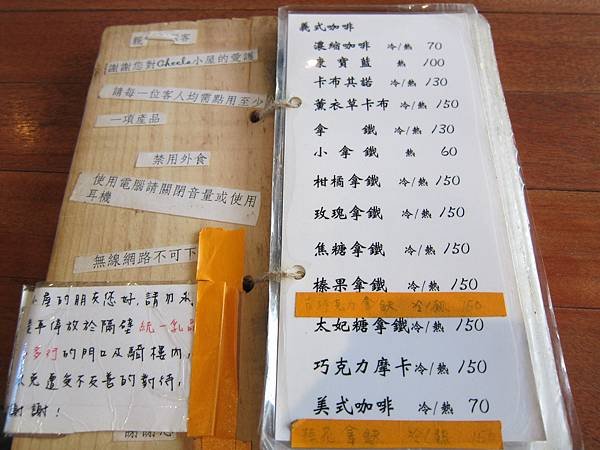 謝謝您對Cheela小屋的愛護
請每一位客人均需點用至少
一項產品
禁用外食
使用電腦請關閉音量或使用
耳機
無線網路不可下
小屋的朋友您好,請勿將
停放於隔壁統一乳品
的門口及騎樓內,
以免遭受不友善的對待,
謝謝!
義式咖啡
濃縮咖啡 冷/熱 70
康寶藍 熱 100
卡布其諾 冷/熱 130
薰衣草卡布 冷/熱 150
拿鐵 冷/熱 130
小拿鐵 熱 60
柑橘拿鐵 冷/熱 150
玫瑰拿鐵 冷/熱 150
焦糖拿鐵 冷/熱 150
榛果拿鐵 冷/熱 150
巧克力拿鐵 冷/熱 150
太妃糖拿鐵 冷/熱 150
巧克力摩卡 冷/熱 150
美式咖啡 冷/熱 70
拿鐵 冷/熱 150